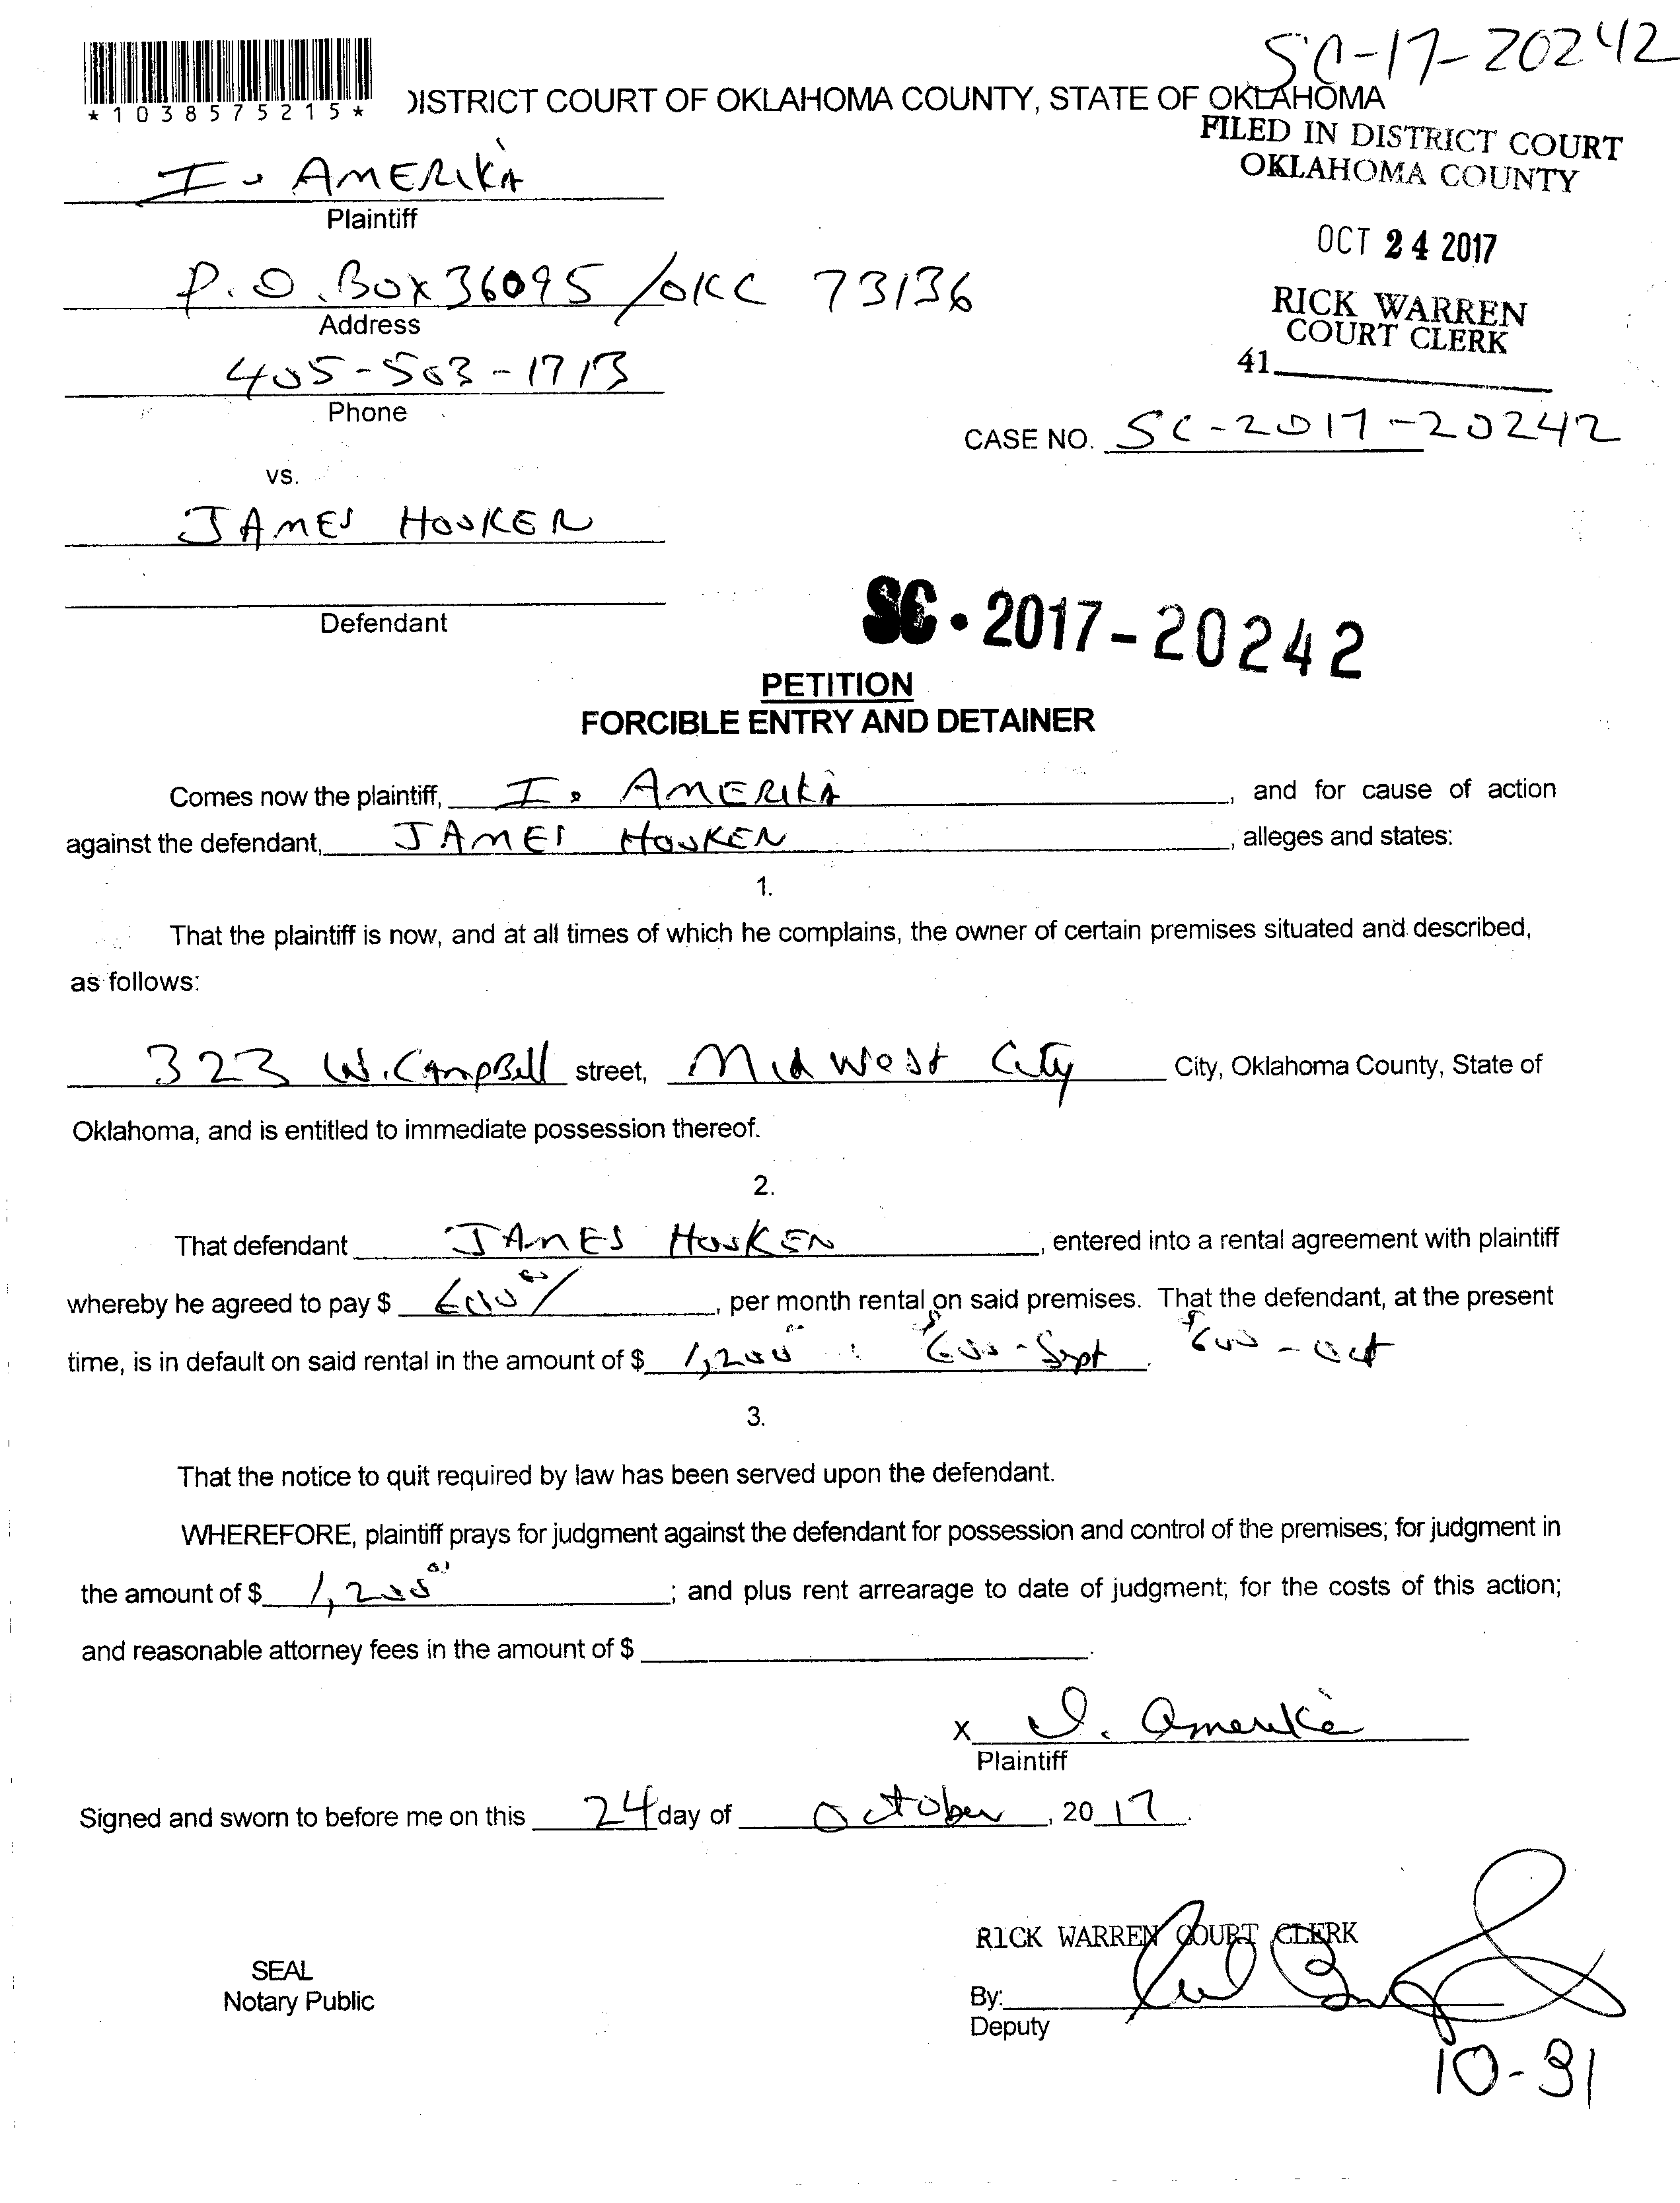 SC-17-20242
*1038575215*
DISTRICT COURT OF OKLAHOMA COUNTY, STATE OF OKLAHOMA
FILED IN DISTRICT COURT
OKLAHOMA COUNTY
I. AMERIKA
Plaintiff
OCT 24 2017
P.O. Box 36095 / OKC 73136
Address
RICK WARREN
COURT CLERK
41
405-503-1713
Phone
CASE NO. SC-2017-20242
vs.
JAMES HOOKER
Defendant
SC-2017-20242
PETITION
FORCIBLE ENTRY AND DETAINER
Comes now the plaintiff, I. AMERIKA, and for cause of action
against the defendant, JAMES HOOKER, alleges and states:
1.
That the plaintiff is now, and at all times of which he complains, the owner of certain premises situated and described,
as follows:
323 W. CampBell street, Midwest City City, Oklahoma County, State of
Oklahoma, and is entitled to immediate possession thereof.
2.
That defendant JAMES HOOKER, entered into a rental agreement with plaintiff
whereby he agreed to pay $ 600 00/, per month rental on said premises. That the defendant, at the present
time, is in default on said rental in the amount of $ 1,200 00 : $600 - Sept. $600 - Oct
3.
That the notice to quit required by law has been served upon the defendant.
WHEREFORE, plaintiff prays for judgment against the defendant for possession and control of the premises; for judgment in
the amount of $ 1,200 00; and plus rent arrearage to date of judgment; for the costs of this action;
and reasonable attorney fees in the amount of $
X I. Amerika
Plaintiff
Signed and sworn to before me on this 24 day of October, 2017.
RICK WARREN COURT CLERK
SEAL
Notary Public
By:
Deputy
10-31